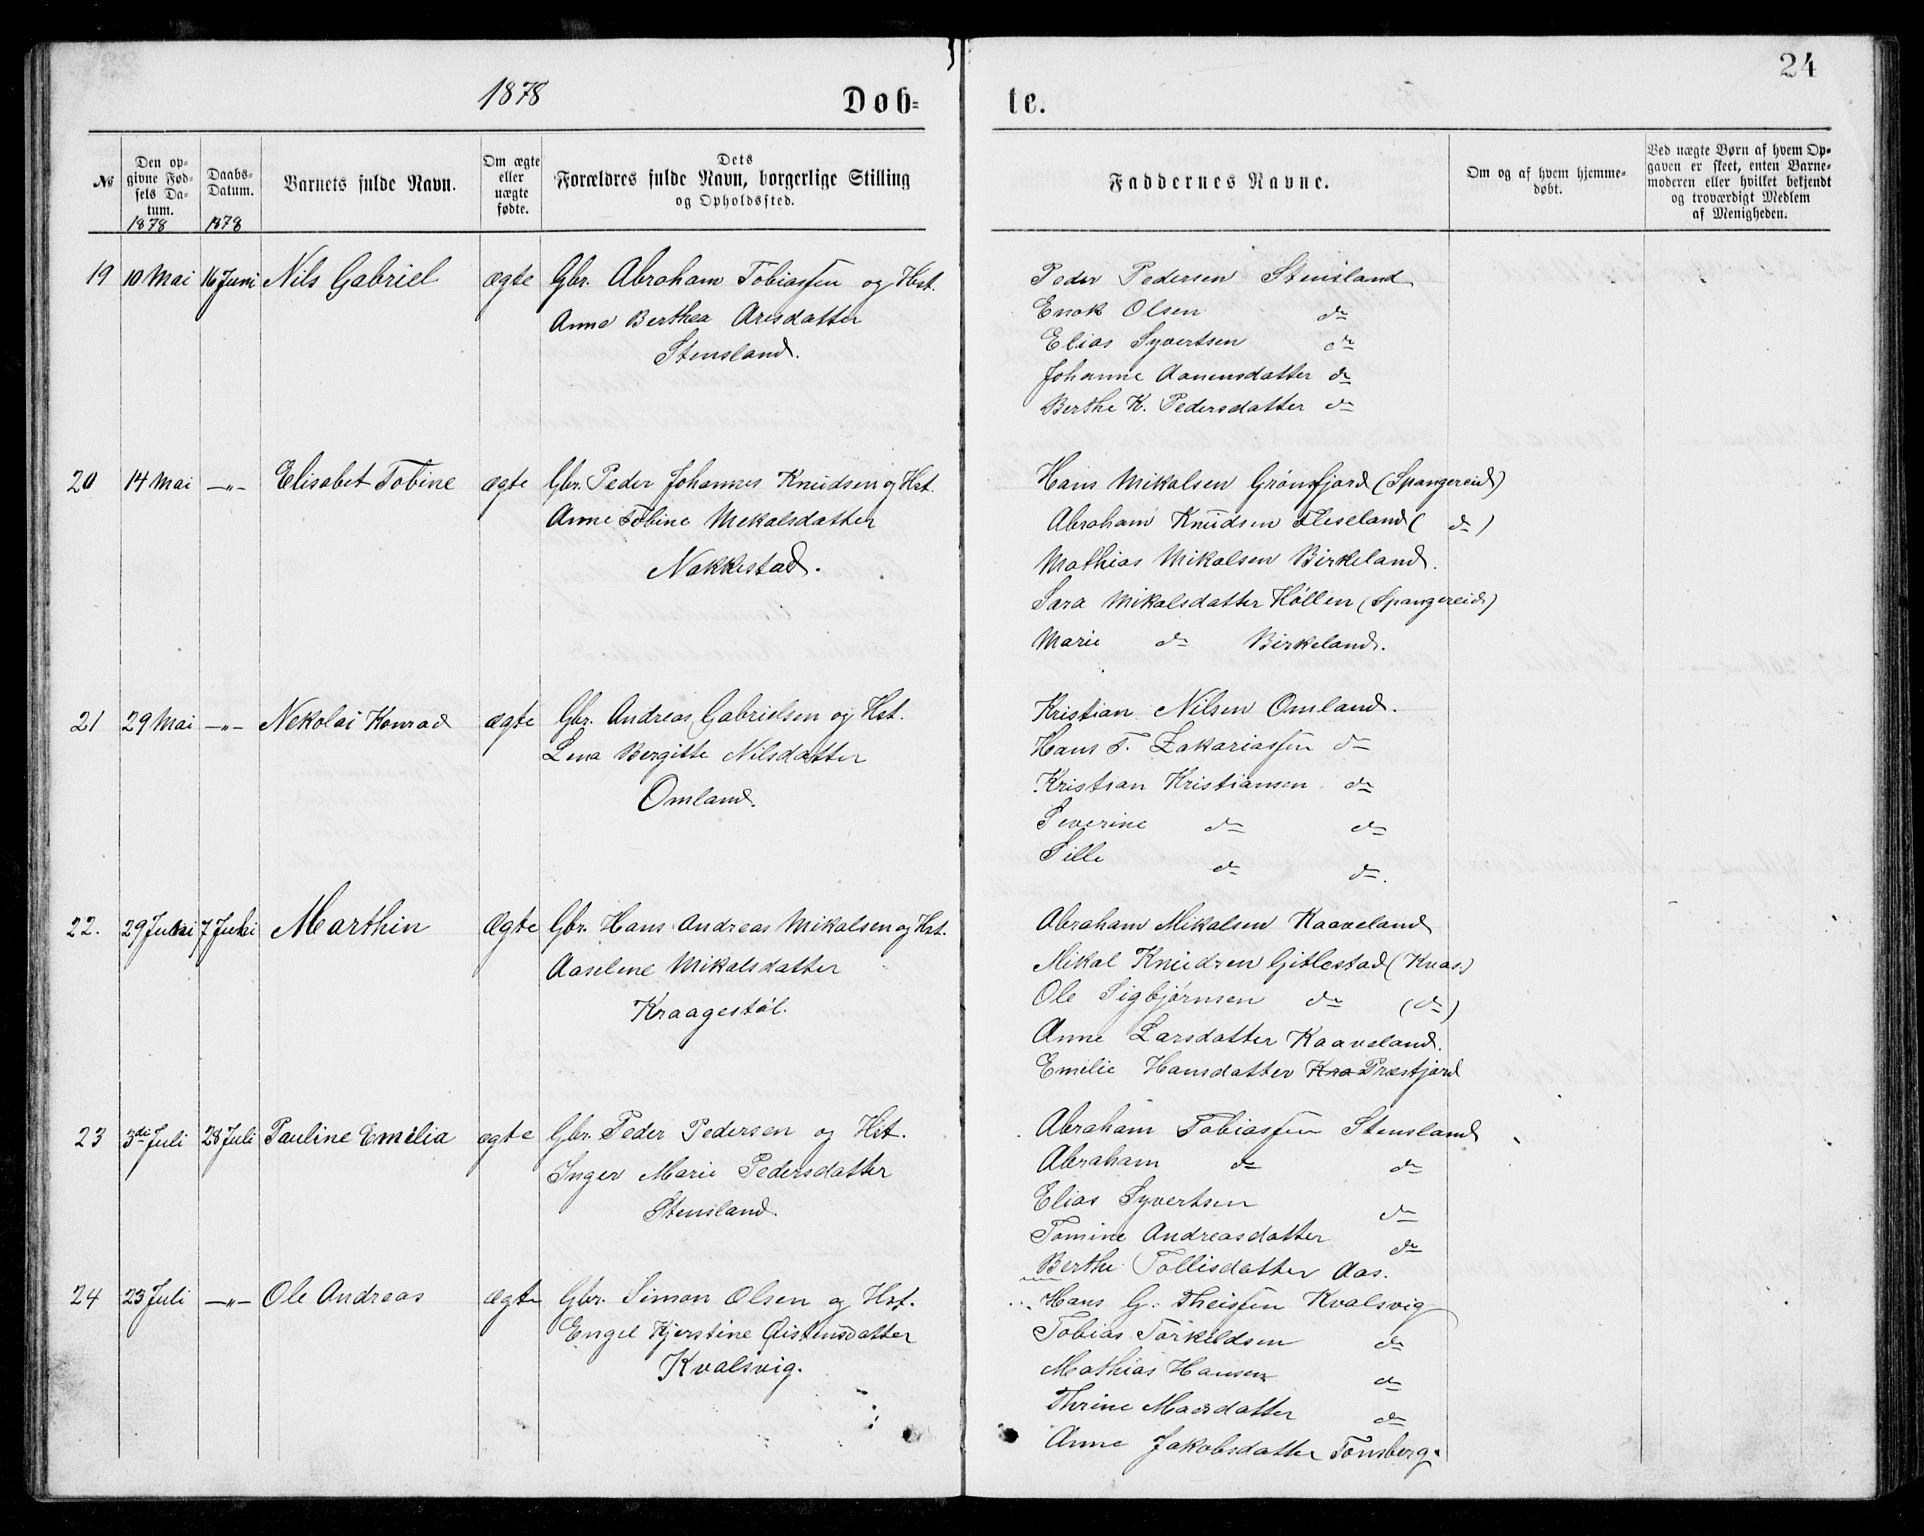 24
1878
Døb-
te.
№
Den op-
givne Fød-
sels Da-
tum.
1878
Daabs-
Datum.
1878
Barnets fulde Navn.
Om ægte
eller
uægte
fødte.
Dets
Forældres fulde Navn, borgerlige Stilling
og Opholdssted.
Faddernes Navne.
Om og af hvem hjemme-
døbt.
Ved uægte Børn af hvem Op-
gaven er skeet, enten Barne-
moderen eller hvilket bekjendt
og troværdigt Medlem
af Menigheden.
19 10 Mai 16 Juni Nils Gabriel ægte Gbr. Abraham Tobiassen og Hst.
Anne Berthea Aresdatter
Stensland.
Peder Pedersen Stensland
Enok Olsen do
Elias Syvertsen do
Johanne Aanensdatter do
Berthe K. Pedersdatter do
20 14 Mai —"— Elisabet Tobine ægte Gbr. Peder Johannes Knudsen og Hst.
Anne Tobine Mekalsdatter
Nakkestad.
Hans Mikalsen Grønsfjord (Spangereid)
Abraham Knudsen Fleseland ( do )
Mathias Mikalsen Birkeland.
Sara Mikalsdatter Høllen (Spangereid)
Marie do Birkeland.
21 29 Mai —"— Nekolai Konrad ægte Gbr. Andreas Gabrielsen og Hst.
Lena Bergitte Nilsdatter
Omland.
Kristian Nilsen Omland.
Hans T. Zakariassen do
Kristian Kristiansen do
Severine do do
Sille do do.
22. 29 7 Marthin Ægte Gbr. Hans Andreas Mikalsen og Hst.
Aaselene Mikalsdatter
Kraagestøl.
Abraham Mikalsen Kaaveland
Mikal Knudsen Gitlestad (Kvas)
Ole Sigbjørnsen do (do)
Anne Larsdatter Kaaveland.
Emilie Hansdatter Kra Præstjord
23 3die Juli 28 Juli Pauline Emilia ægte Gbr. Peder Pedersen og Hst.
Inger Marie Pedersdatter
Stensland.
Abraham Tobiassen Stensland
Abraham do do
Elias Syvertsen do
Tomine Andreasdatter do
Berthe Tollisdatter Aas.
24 23 Juli —"— Ole Andreas ægte Gbr. Simon Olsen og Hst.
Engel Kjerstine
Kvalsvig.
Hans G. Theissen Kvalsvig
Tobias Torkildsen do
Mathias Hansen do
Thrine do
Anne Jakobsdatter Tonsberg.